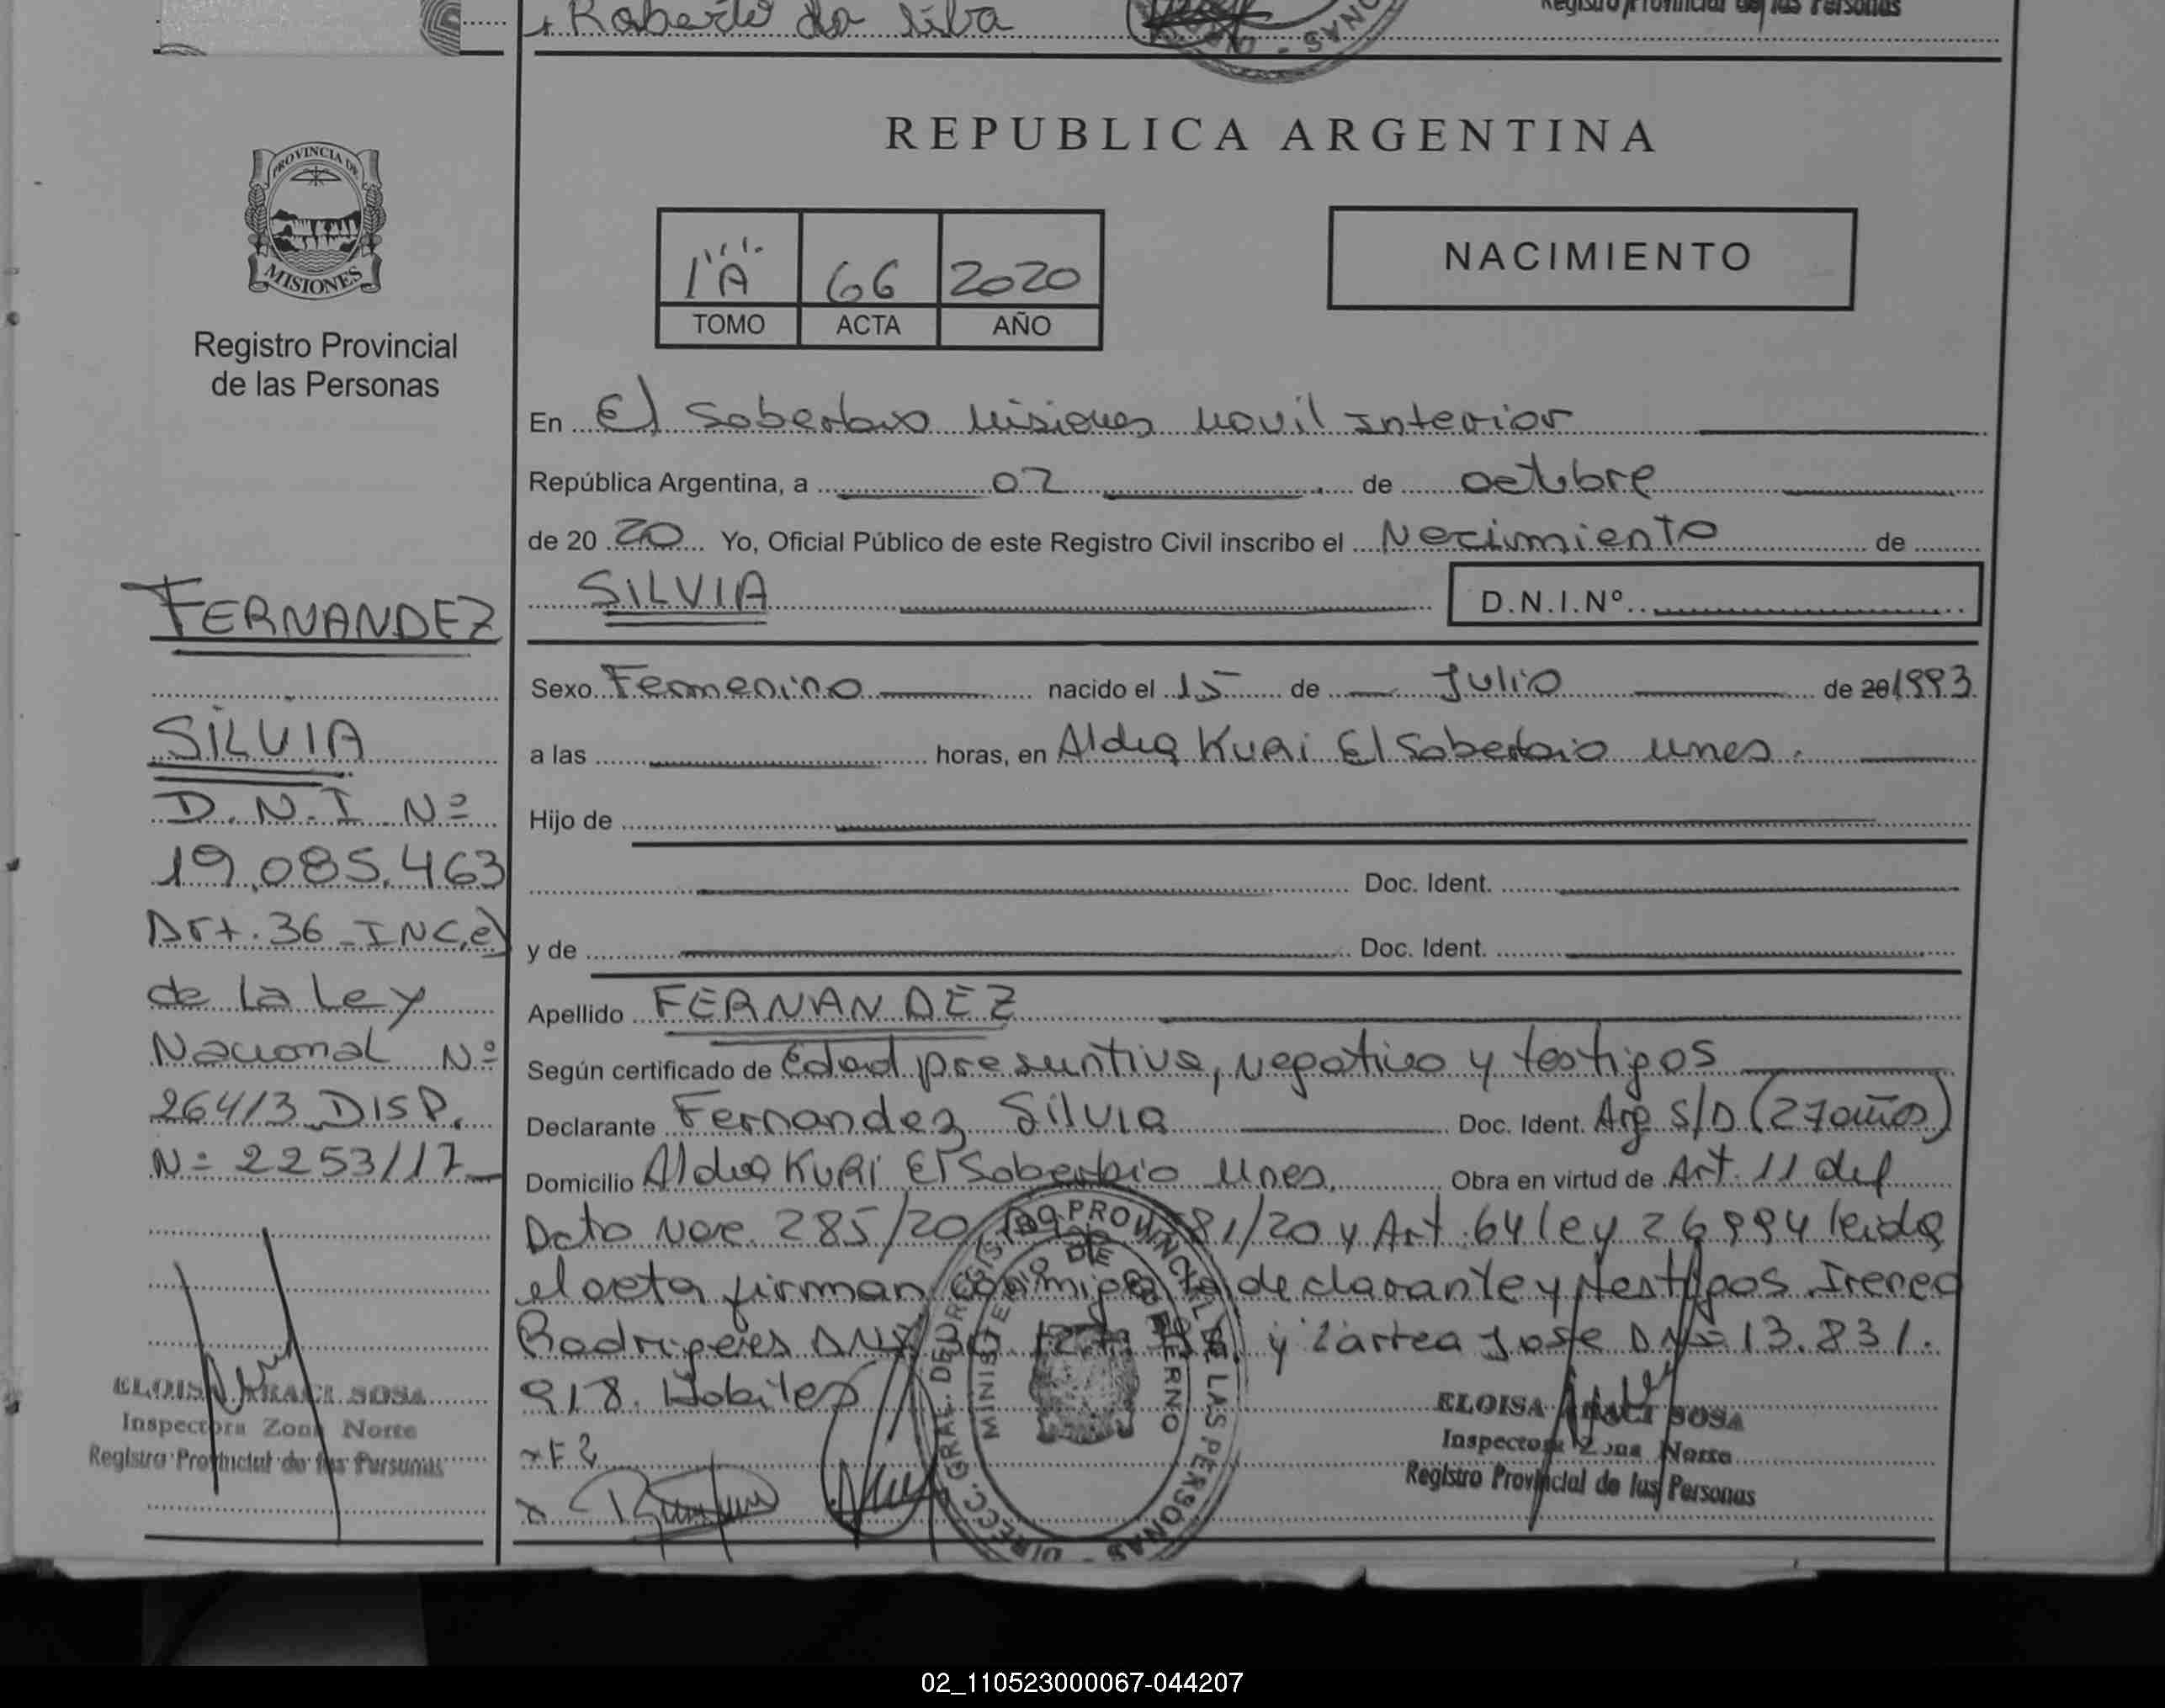 Roberto da silva
Registro Provincial de las Personas
PROVINCIA DE
MISIONES
Registro Provincial
de las Personas
REPUBLICA ARGENTINA
1 "A" 66 2020
TOMO ACTA AÑO
NACIMIENTO
En El Soberbio Misiones Movil Interior
República Argentina, a 02 de octubre
de 20 20 Yo, Oficial Público de este Registro Civil inscribo el Nacimiento de
SILVIA D.N.I.Nº
Sexo Femenino nacido el 15 de Julio de 20 1993
a las horas, en Aldea KuRi El Soberbio Mnes.
Hijo de
Doc. Ident.
y de Doc. Ident.
Apellido FERNANDEZ
Según certificado de Edad presuntiva, negativo y testigos
Declarante Fernandez Silvia Doc. Ident. Arg S/D (27 años)
Domicilio Aldea KuRi El Soberbio Mnes. Obra en virtud de Art. 11 del
Dcto Nac. 285/20 81/20 y Art. 64 ley 26994 leida
el acta firman conmigo la declarante y testigos Ireneo
Rodrigues DNI y Zartea Jose DNI 13.831.
918. Habiles
FERNANDEZ
SILVIA
D.N.I Nº
19.085.463
Art. 36 INC.e)
de La Ley
Nacional Nº
26413 DISP.
Nº 2253/17
ELOISA ARACI SOSA
Inspectora Zona Norte
Registro Provincial de las Personas
DIRECC. GRAL. DEL REGISTRO PROVINCIAL DE LAS PERSONAS
MINISTERIO DE GOBIERNO
ELOISA ARACI SOSA
Inspectora Zona Norte
Registro Provincial de las Personas
02_110523000067-044207